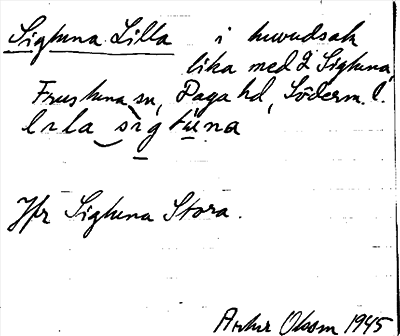 Sigtuna Lilla i huvudsak
lika med L Sigtuna,
Frustuna sn, Daga hd, Söderm. l.
lɩla sɩgtuna
Jfr Sigtuna Stora.
Artur Olsson 1945